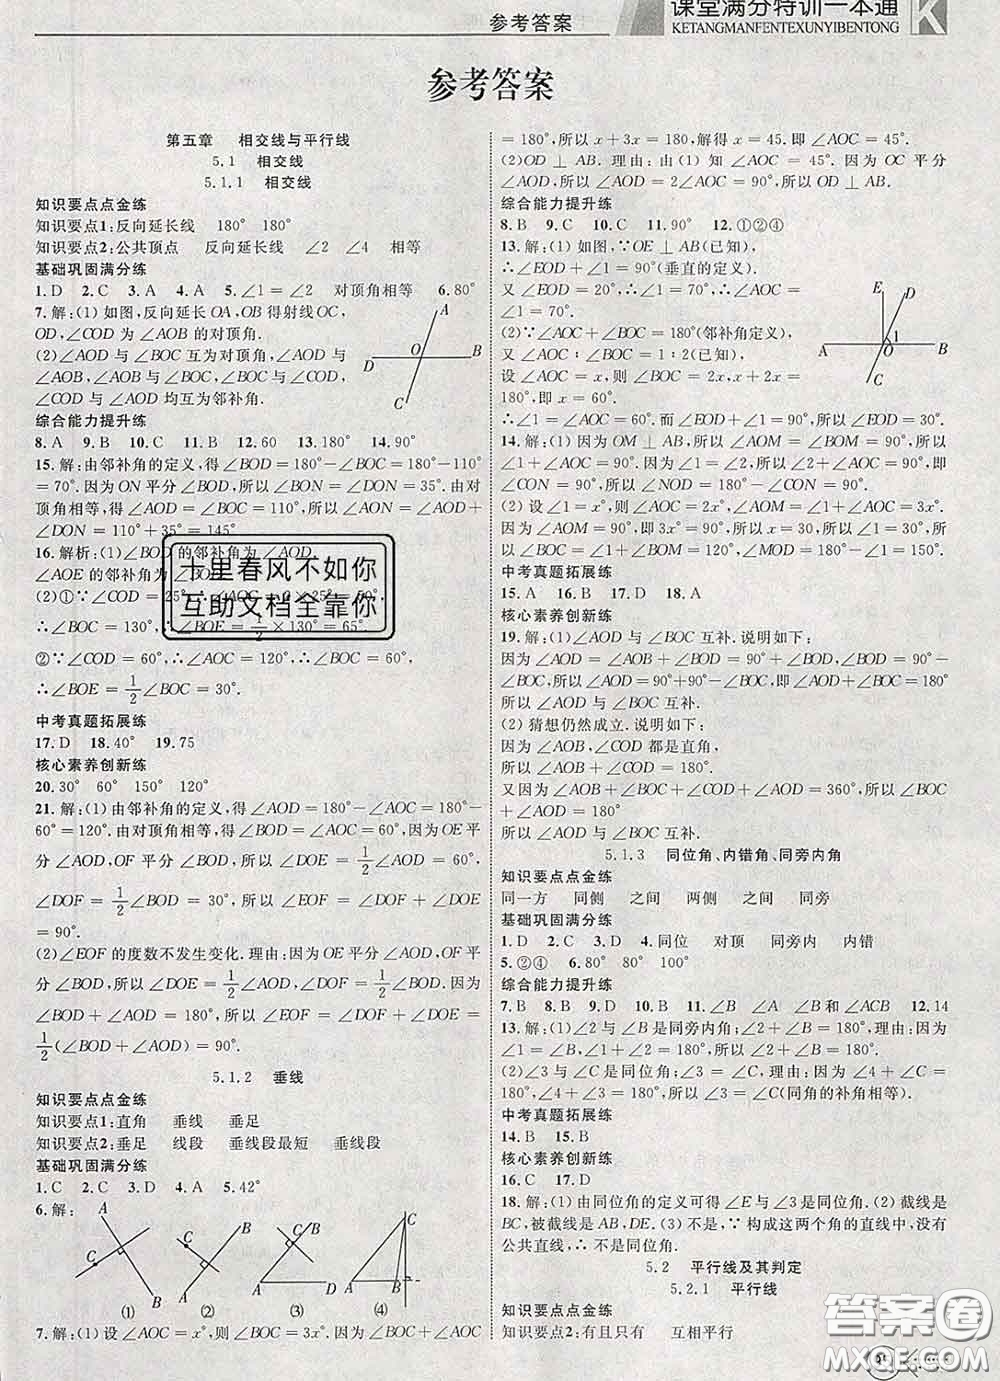 参考答案
课堂满分特训一本通
KETANGMANFENTEXUNYIBENTONG
参考答案
第五章 相交线与平行线
5.1 相交线
5.1.1 相交线
知识要点点金练
知识要点1:反向延长线 180° 180°
知识要点2:公共顶点 反向延长线 ∠2 ∠4 相等
基础巩固满分练
1.D 2.C 3.A 4.A 5.∠1=∠2 对顶角相等 6.80°
7.解:(1)如图,反向延长OA,OB得射线OC,
OD,∠COD为∠AOB的对顶角.
(2)∠AOD与∠BOC互为对顶角,∠AOD与
∠AOB,∠AOB与∠BOC,∠BOC与∠COD,
∠COD与∠AOD均互为邻补角.
A
O
B
D
C
综合能力提升练
8.A 9.B 10.C 11.B 12.60 13.180° 14.90°
15.解:由邻补角的定义,得∠BOD=180°-∠BOC=180°-110°
=70°.因为ON平分∠BOD,所以∠BON=∠DON=35°.由对
顶角相等,得∠AOD=∠BOC=110°,所以∠AON=∠AOD+
∠DON=110°+35°=145°.
16.解析:(1)∠BOD的邻补角为∠AOD,
∠AOE的邻补角为∠BOE
∴∠BOC=130°,∴∠BOE=1/2×130°=65°
②∵∠COD=60°,∴∠AOC=120°,∴∠BOC=60°,
∴∠BOE=1/2∠BOC=30°.
中考真题拓展练
17.D 18.40° 19.75
核心素养创新练
20.30° 60° 150° 120°
21.解:(1)由邻补角的定义,得∠AOD=180°-∠AOC=180°-
60°=120°.由对顶角相等,得∠BOD=∠AOC=60°,因为OE平
分∠AOD,OF平分∠BOD,所以∠DOE=1/2∠AOD=60°,
∠DOF=1/2∠BOD=30°,所以∠EOF=∠DOF+∠DOE
=90°.
(2)∠EOF的度数不发生变化.理由:因为OE平分∠AOD,OF平
分∠BOD,所以∠DOE=1/2∠AOD,∠DOF=1/2∠BOD,因为
∠BOD+∠AOD=180°,所以∠EOF=∠DOF+∠DOE=
1/2(∠BOD+∠AOD)=90°.
5.1.2 垂线
知识要点点金练
知识要点1:直角 垂线 垂足
知识要点2:垂足 线段 垂线段最短 垂线段
基础巩固满分练
1.C 2.C 3.D 4.A 5.42°
6.解:
A C B
①
B C A
②
C B A D
③
C A B
④
7.解:(1)设∠AOC=x°,则∠BOC=3x°,因为∠AOC+∠BOC
=180°,所以x+3x=180,解得x=45.即∠AOC=45°.
(2)OD⊥AB.理由:由(1)知∠AOC=45°.因为OC平分
∠AOD,所以∠AOD=2∠AOC=90°,所以OD⊥AB.
综合能力提升练
8.B 9.C 10.C 11.90° 12.①②④
13.解:(1)如图,∵OE⊥AB(已知),
∴∠EOD+∠1=90°(垂直的定义).
又∠EOD=20°,∴∠1=70°,∴∠AOC=
∠1=70°.
(2)∵∠AOC+∠BOC=180°(邻补角定义),
又∠AOC:∠BOC=1:2(已知),
设∠AOC=x,则∠BOC=2x,x+2x=
180°,即x=60°.
E
D
1
A
O
B
C
∴∠1=∠AOC=60°.而∠EOD+∠1=90°,所以∠EOD=30°.
14.解:(1)因为OM⊥AB,所以∠AOM=∠BOM=90°,所以
∠1+∠AOC=90°.因为∠1=∠2,所以∠2+∠AOC=90°,即
∠CON=90°,所以∠NOD=180°-∠CON=90°.
(2)设∠1=x°,则∠AOC=2x°,所以∠AOM=∠AOC+∠1=3x°.
因为∠AOM=90°,即3x°=90°,所以x=30,所以∠1=30°,所
以∠MOD=180°-∠1=150°.
中考真题拓展练
15.A 16.B 17.D 18.A
核心素养创新练
19.解:(1)∠AOD与∠BOC互补.说明如下:
因为∠AOD=∠AOB+∠BOD=90°+∠BOD,∠BOC=90°-
∠BOD,所以∠AOD=90°+90°-∠BOC,即∠AOD+∠BOC=180°
所以∠AOD与∠BOC互补.
(2)猜想仍然成立.说明如下:
因为∠AOB,∠COD都是直角,
所以∠AOB+∠COD=180°.
又因为∠AOB+∠BOC+∠COD+∠AOD=360°,所以∠BOC
+∠AOD=180°
所以∠AOD与∠BOC互补.
5.1.3 同位角、内错角、同旁内角
知识要点点金练
同一方 同侧 之间 两侧 之间 同旁
基础巩固满分练
1.D 2.C 3.D 4.同位 对顶 同旁内 内错
5.②④ 6.80° 80° 100°
综合能力提升练
7.B 8.B 9.D 10.B 11.∠B ∠A ∠B和∠ACB 12.14
13.解:(1)∠2与∠5是同旁内角;∠2+∠5=180°,理由:因为
∠1=∠5,∠1+∠2=180°,所以∠2+∠5=180°.
(2)∠3与∠6是同位角;∠3=∠6.理由:因为∠4+∠6=
180°,∠3+∠4=180°,所以∠3=∠6(同角的补角相等).
中考真题拓展练
14.B 15.B
核心素养创新练
16.C 17.D
18.解:(1)由同位角的定义可得∠E与∠3是同位角.(2)截线是
BC,被截线是AB,DE.(3)不是,∵构成这两个角的直线中,没有
公共直线,∴不是同位角.
5.2 平行线及其判定
5.2.1 平行线
知识要点点金练
知识要点2:有且只有 互相平行
十里春风不如你
互助文档全靠你
答案圈
MXQE.COM